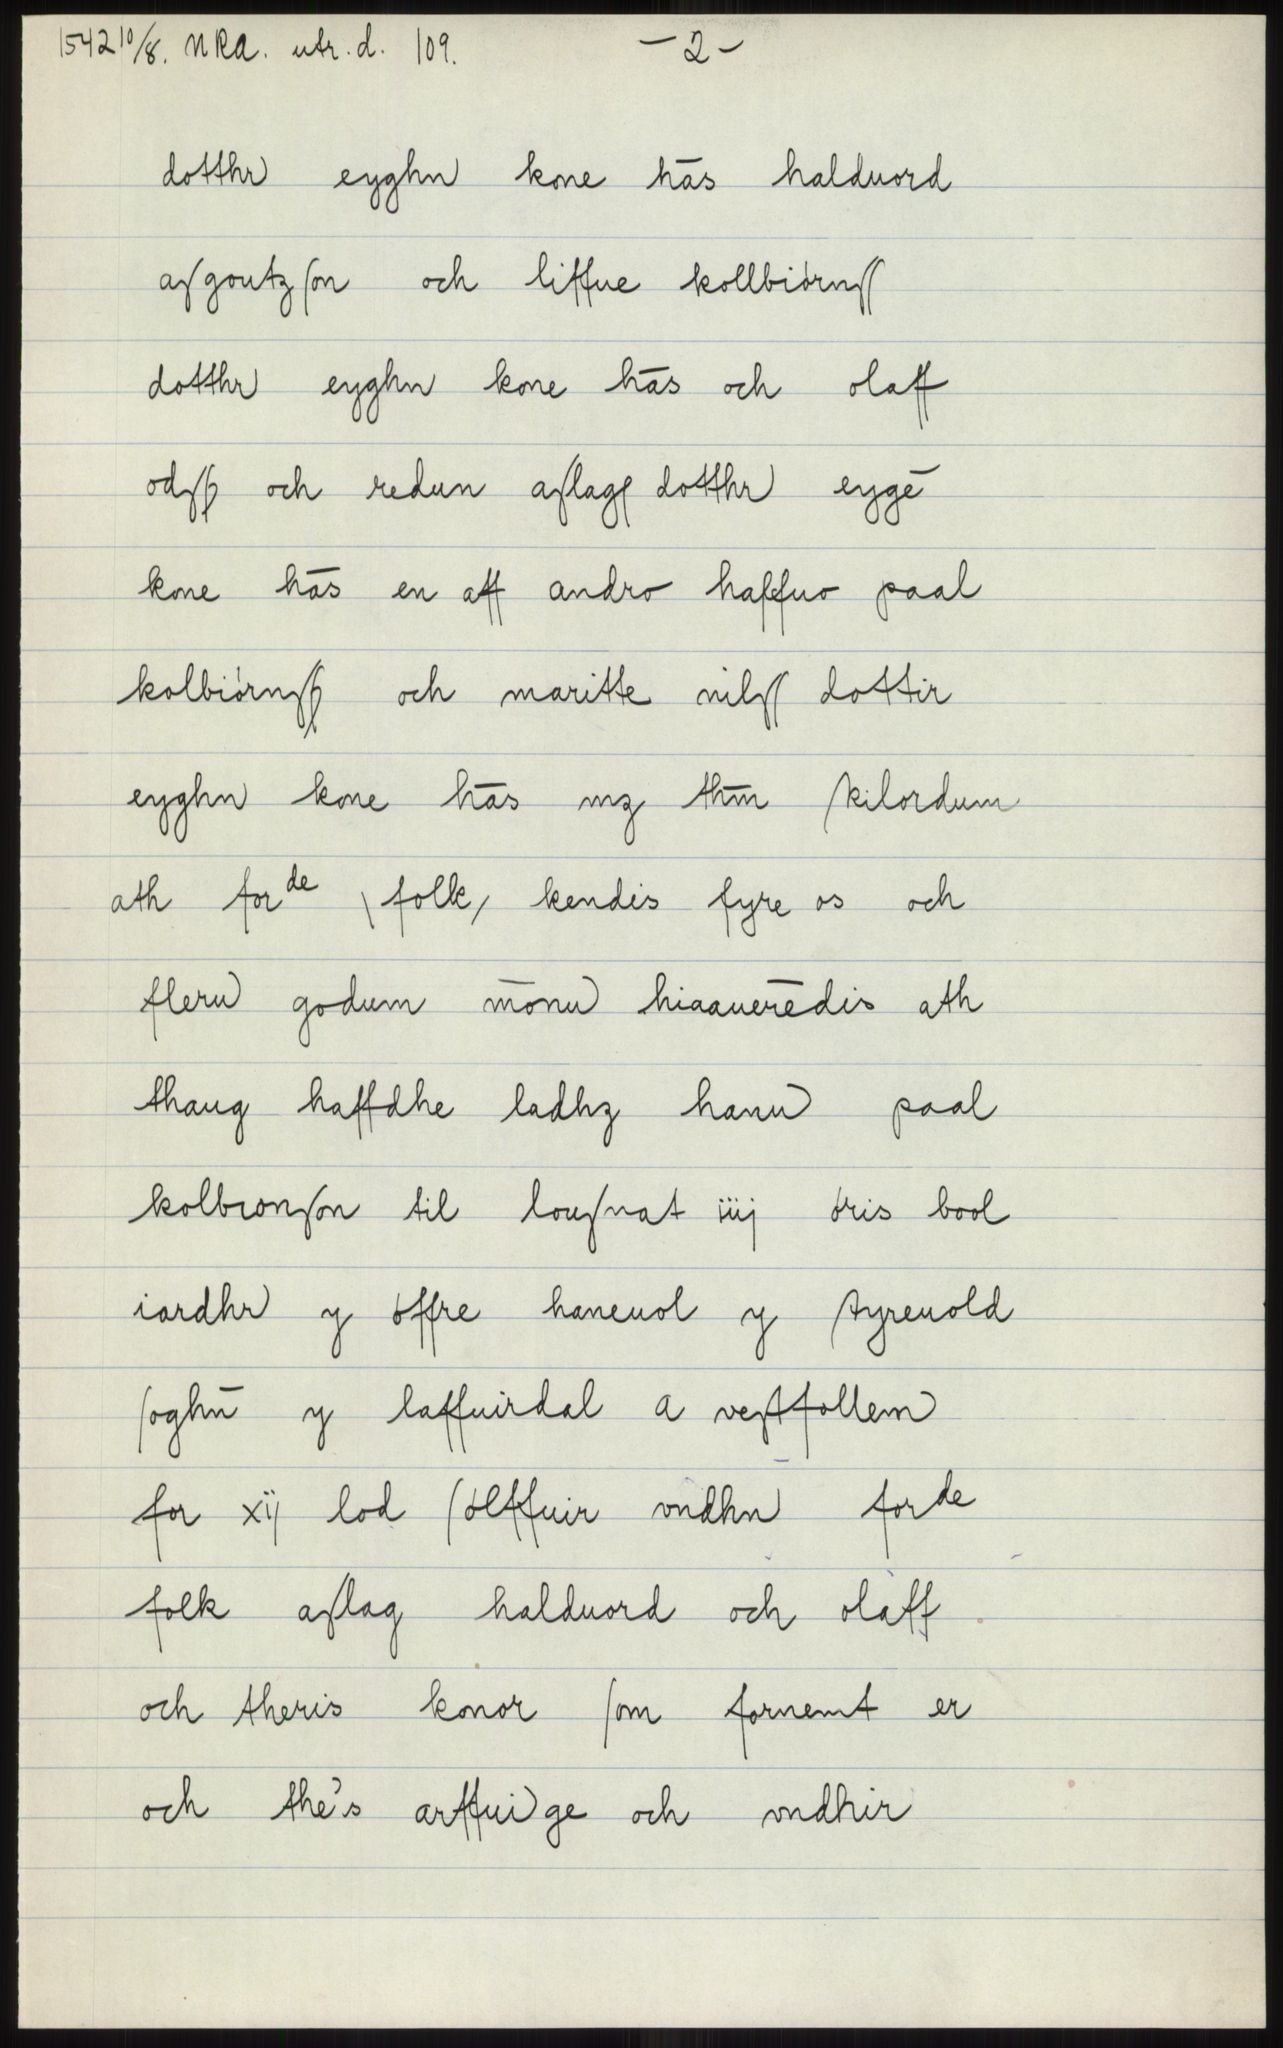 1542 10/8. NRA. utr. d. 109. – 2 –
dotthr eyghn kone hās halduord
aſgoutzſon och liffue kollbiörnſſ
dotthr eyghn kone hās och olaff
odſſ och redun aſlagſ dotthr eygē
kone hās en aff andro haffuo paal
kolbiörnſſ och maritte nilſſ dottir
eyghn kone hās mz thm̄ ſkilordum
ath forde \folk/ kendis fyre os och
fleru godum mōnu hiaauerēdis ath
thaug haffdhe ladhz hanu paal
kolbronſon til louſnat iiij öris bool
iardhr y öffre haneuol y ſtyreuold
ſoghn̄ y laffuirdal a veſtfollem
for xij lod ſölffuir vndhn forde
folk aſlag halduord och olaff
och theris konor ſom fornemt er
och the's arffuige och vndhir